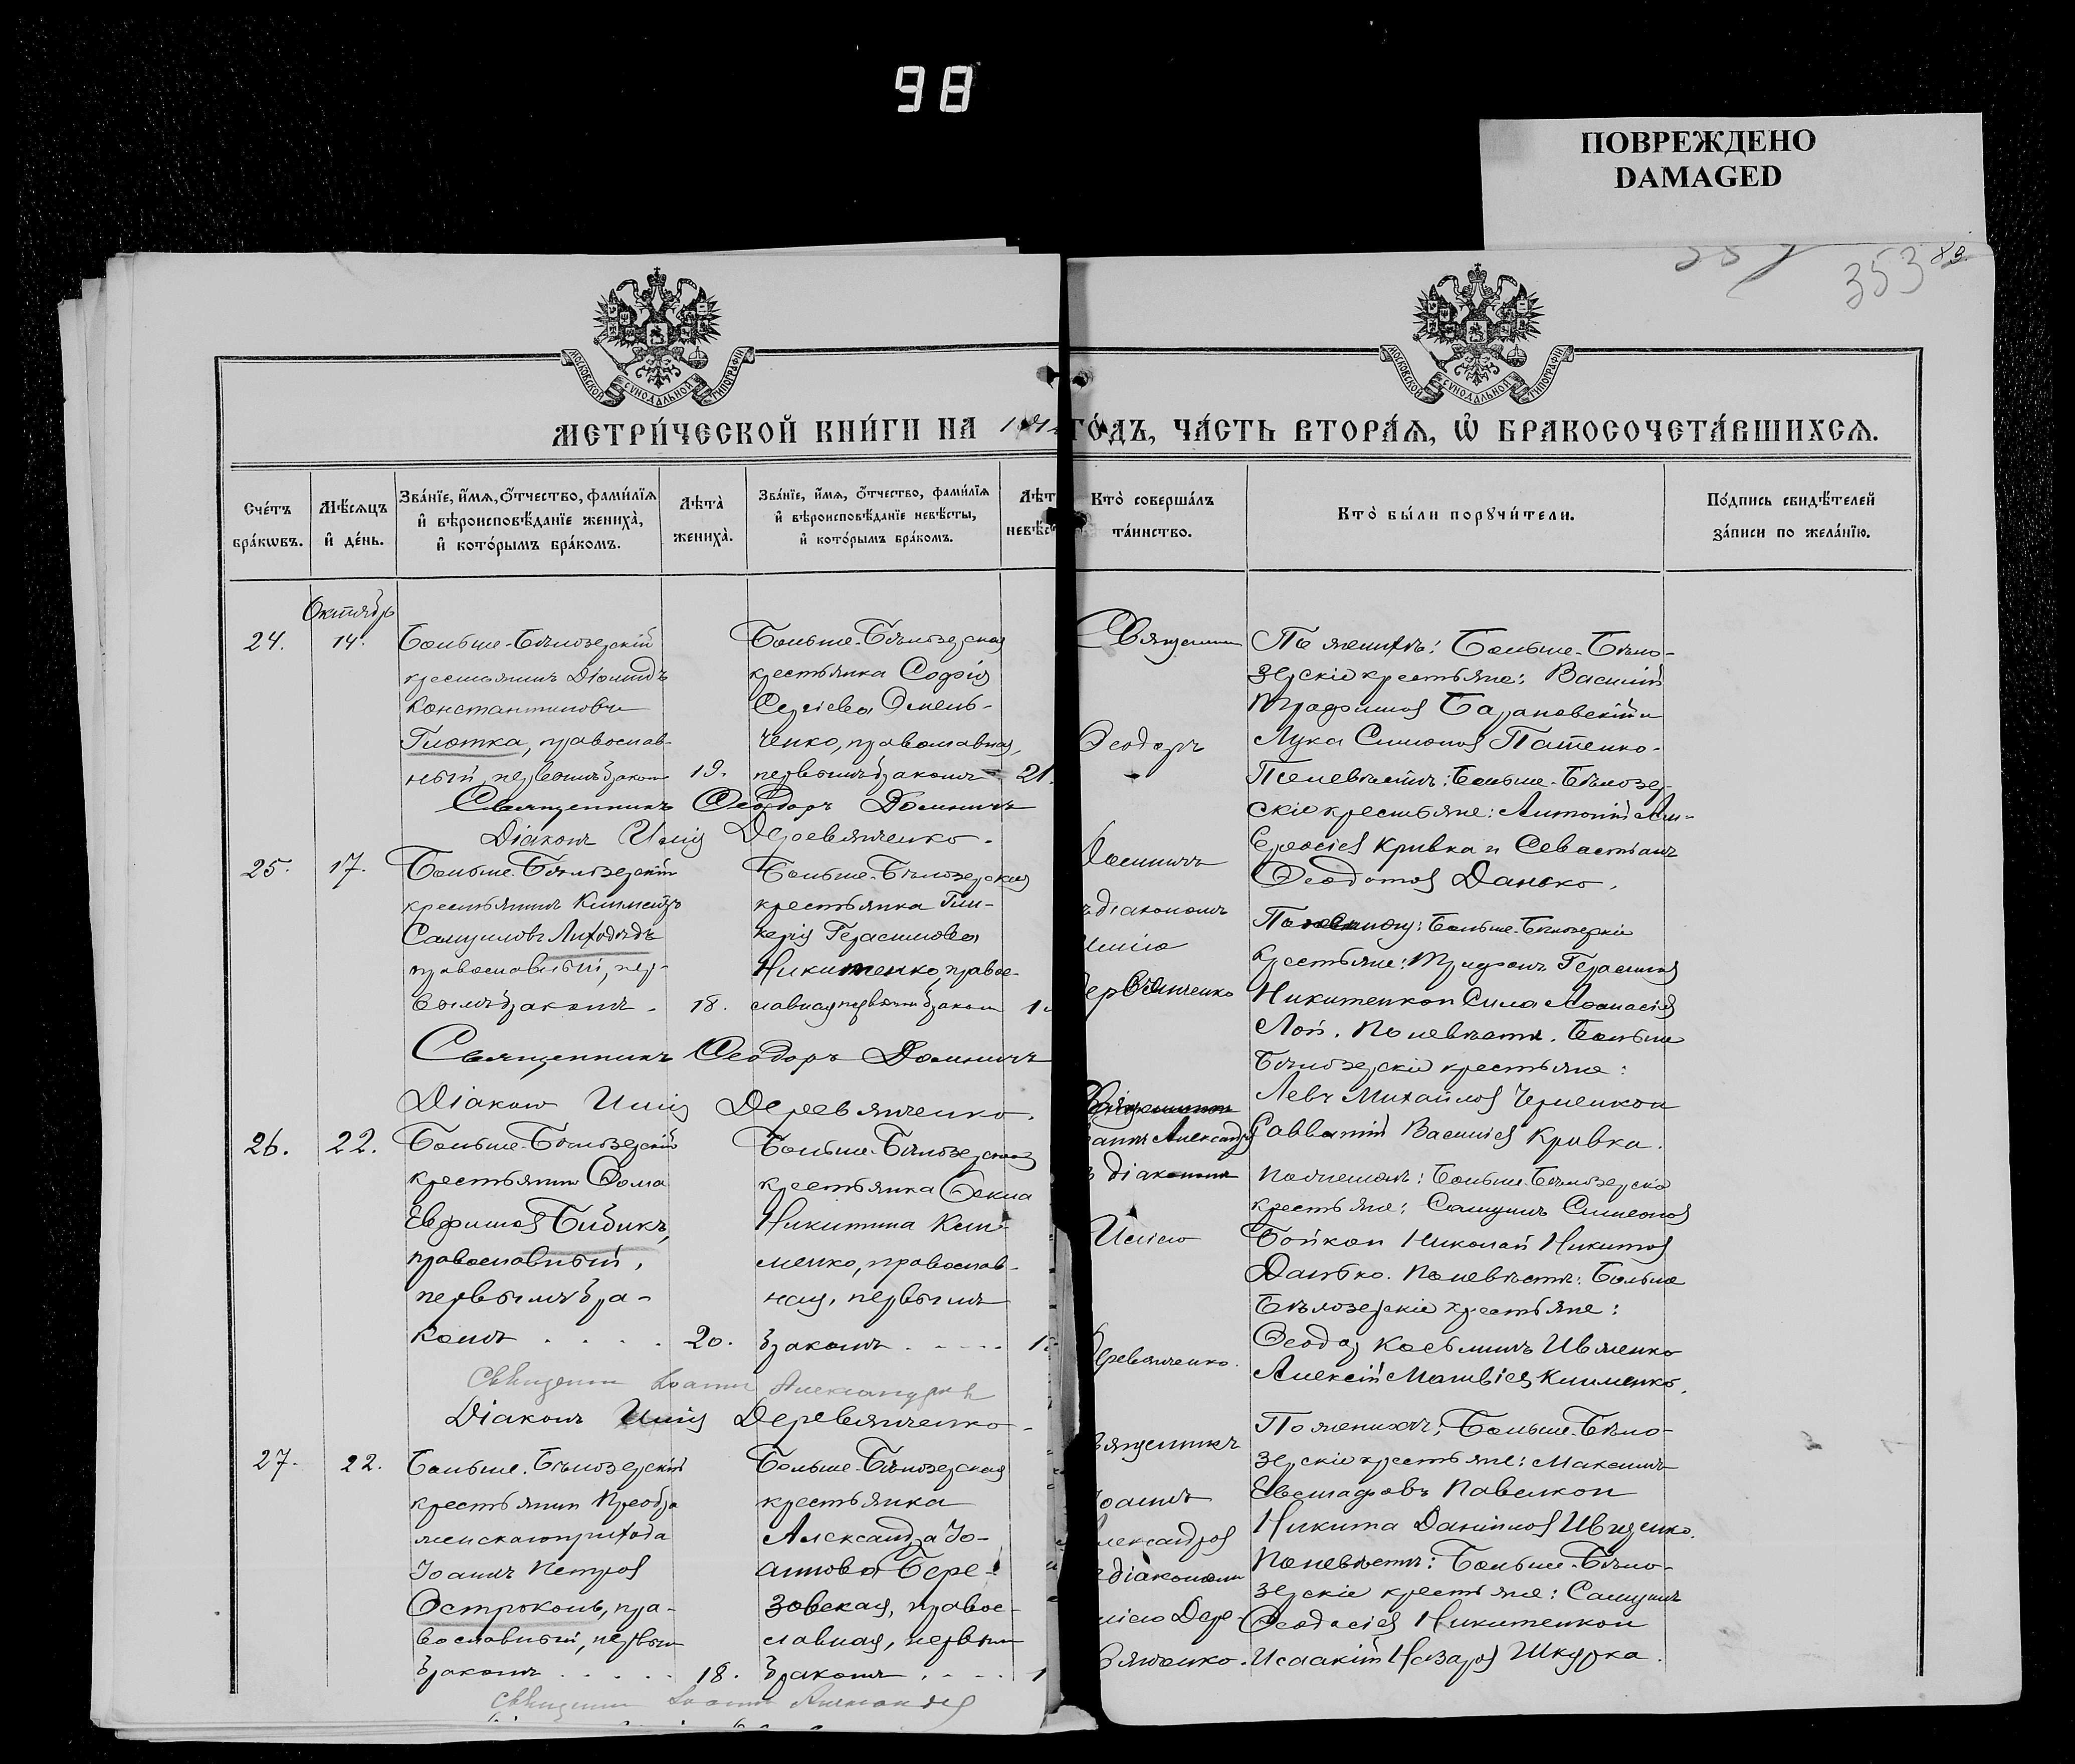 98
ПОВРЕЖДЕНО
DAMAGED
353
МОСКОВСКОЙ СѴНОДАЛЬНОЙ ТИПОГРАФІИ
МОСКОВСКОЙ СѴНОДАЛЬНОЙ ТИПОГРАФІИ
МЕТРИ́ЧЕСКОЙ КНИ́ГИ НА
ГО́ДЪ, ЧА́СТЬ ВТОРА́Ѧ, Ѡ҆ БРАКОСОЧЕТА́ВШИХСѦ.
Сче́тъ бра́кѡвъ.
Мѣ́сяцъ и҆ де́нь.
Зва́нїе, и҆́мѧ, ѻ҆́тчество, фами́лїѧ
и҆ вѣроисповѣ́данїе жениха̀,
и҆ кото́рымъ бра́комъ.
Лѣта̀ жениха̀.
Зва́нїе, и҆́мѧ, ѻ҆́тчество, фами́лїѧ
и҆ вѣроисповѣ́данїе невѣ́сты,
и҆ кото́рымъ бра́комъ.
Лѣт
невѣс
Кто̀ соверша́лъ
та́инство.
Кто̀ бы́ли порꙋчи́тели.
По́дпись свидѣ́телей
за́писи по жела́нїю.
Октябрь
24.
14.
Больше-Бѣлозерскій
крестьянинъ Діомидъ
Константиновъ
Глотка, православ-
ный, первымъ бракомъ
19.
Больше-Бѣлозерская
крестьянка Софія
Сергіева Омель-
ченко, православная,
первымъ бракомъ
21.
Священник
Ѳеодоръ
Доминичъ
ъ діакономъ
Иліею
Деревянченко
По женихѣ: Больше-Бѣло-
зерскіе крестьяне: Василій
Трофимов Барановскій и
Лука Симонов Патенко.
По невѣстѣ: Больше-Бѣлозер-
скіе крестьяне: Антоній
Кривка и Севастьянъ
Ѳеодотов Данько.
Священникъ Ѳеодоръ Доминичъ
Діаконъ Илія Деревянченко.
25.
17.
Больше-Бѣлозерскій
крестьянинъ Климентъ
Самуиловъ Лиходѣдъ
православный, пер-
вымъ бракомъ.
18.
Больше-Бѣлозерская
крестьянка Гли-
керія Герасимова
Никитенко, право-
славная, первымъ браком
1
Больше-Бѣлозерскіе
крестьяне: Трифонъ Герасимов
Никитенко и Сила Аѳанасіев
Лой. По невѣстѣ: Больше
Бѣлозерскіе крестьяне:
Левъ Михайлов Черненко и
Савватій Василіев Кривка.
Священникъ Ѳеодоръ Доминичъ
Діаконъ Илія Деревянченко.
26.
22.
Больше-Бѣлозерскій
крестьянин Ѳома
Евфимов Бибикъ,
православный,
первымъ бра-
комъ . . . .
20.
Больше-Бѣлозерская
крестьянка Ѳекла
Никитина Кли-
менко, православ-
ная, первымъ
бракомъ . . . .
1
оаннъ Александров
ъ діакономъ
Иліею
Деревянченко.
По женихѣ: Больше-Бѣлозерскіе
крестьяне: Самуилъ Симеонов
Бойко и Николай Никитов
Данько. По невѣстѣ: Больше
Бѣлозерскіе крестьяне:
Ѳеодор Косьминъ Ивженко
Алексій Матвіев Клименко.
Священник Іоанн Александров
Діаконъ Илія Деревянченко.
27.
22.
Больше-Бѣлозерскій
крестьянин Преобра
женскаго прихода
Іоаннъ Петров
Остроконь, пра-
вославный, первым
бракомъ . . . .
18.
Больше-Бѣлозерская
крестьянка
Александра Іо-
аннова Бере-
зовская, право-
славная, первым
бракомъ . . . .
1
вященникъ
Іоаннъ
Александров
діакономъ
Иліею Дере-
вянченко.
По женихѣ: Больше-Бѣло-
зерскіе крестьяне: Максимъ
Евстафовъ Павелко и
Никита Даніилов Иващенко.
По невѣстѣ: Больше-Бѣло-
зерскіе крестьяне: Самуилъ
Ѳеодосіев Никитенко и
Исаакій Назаров Шкурка.
Священник Іоанн Александров